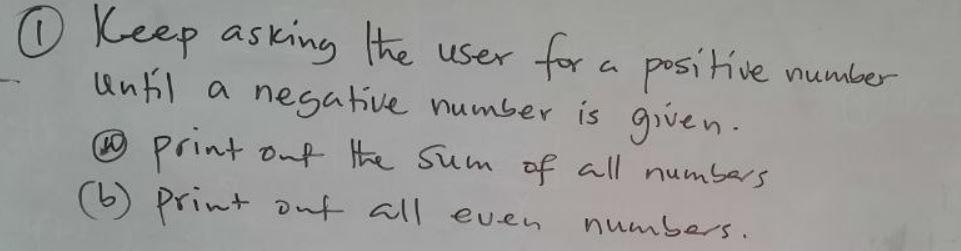 ① Keep asking the user for a positive number
until a negative number is given.
(a) print out the sum of all numbers
(b) print out all even numbers.